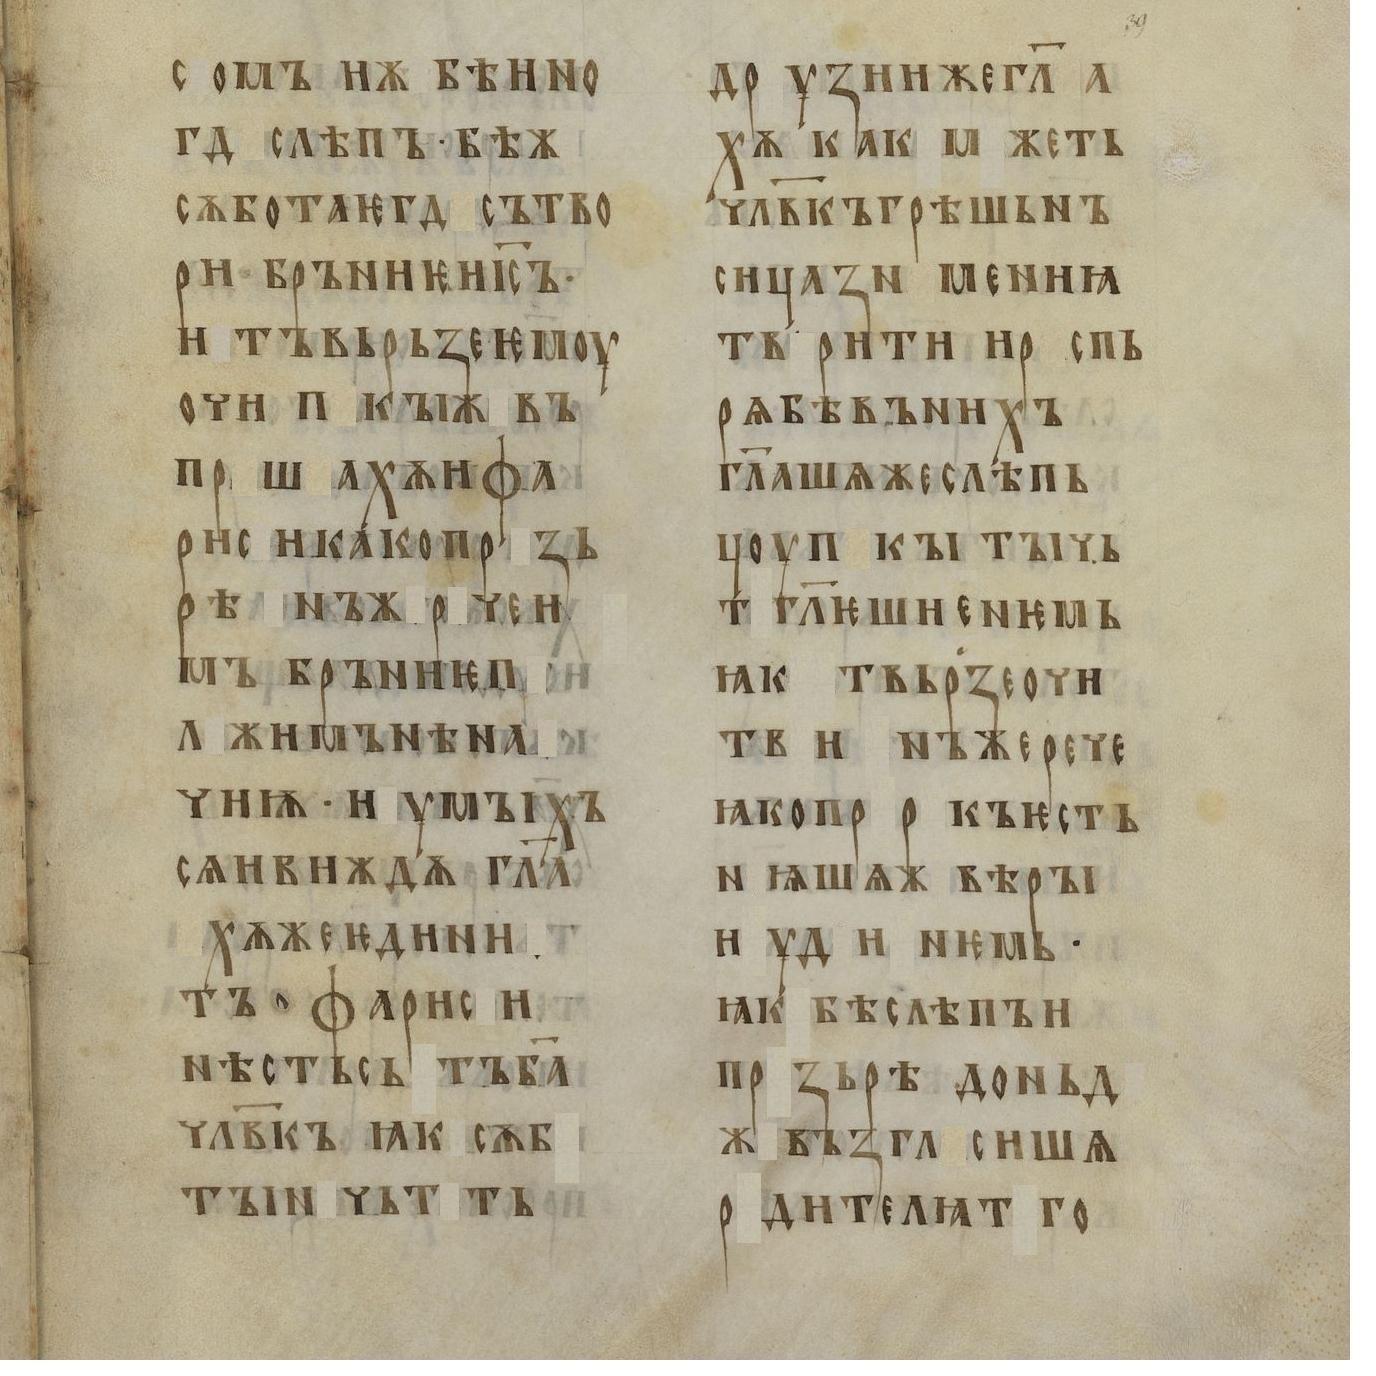 с омъ нѫ бѣнно
гд слѣпъ·бѣж
сѫботаѥгд сътво
ри· брьниѥиі҃съ·
и тъвьрьзеѥмоу
очи п кꙑж въ
пр ш ахѫифа
рис икакопр зь
рѣ нъж р чеи
мъ брьниѥп
л жимънѣна
чиѭ · и умꙑхъ
сѧивиждѫ гл҃а
хѫжеѥдини
тъ · фарис и
нѣстьсь тъб҃а
чл҃вкъ ꙗк сѫб
тꙑн чьт ть
др узиижегл҃ а
хѫ как м жеть
чл҃вкъгрѣшьнъ
сицазн мениꙗ
тв рити ир спь
рѧбѣвънихъ
гл҃ашѧжеслѣпь
цоуп кꙑ тꙑчь
т гл҃ѥшиенѥмь
ꙗк твьрзеочи
тв и нъжерече
ꙗкопр р къѥсть
н ꙗшѧж вѣрꙑ
и уд и нѥмь ·
ꙗк бѣслѣпъи
пр зьрѣ доньд
ж възгл сишѧ
р дителꙗт го